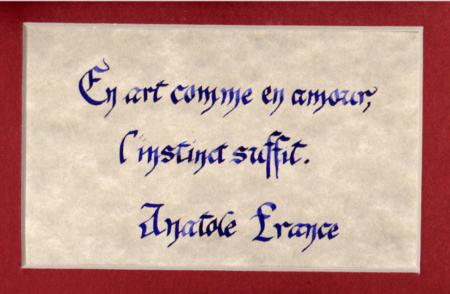 En art comme en amour,
l'instinct suffit.
Anatole France